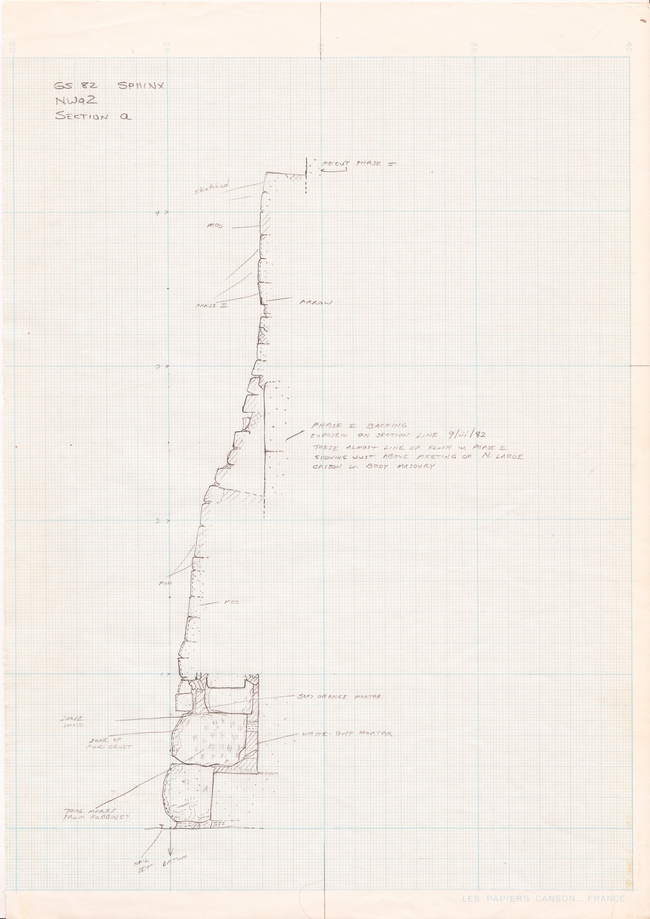 GS 82 SPHINX
NW92
SECTION a
RECUT PHASE I
4
MOD
PHASE II
ARROW
3
PHASE I BACKING
EXPOSED ON SECTION LINE 9/iii/82
THESE ALMOST LINE UP FLUSH W. PHASE I
SHOWING JUST ABOVE MEETING OF N. LARGE
CAISON W. BODY MASONRY
2
MOD
MOD
1
SOFT ORANGE MORTAR
LARGE
ZONE OF
PUR. CRUST
WHITE-BUFF MORTAR
TOOL MARKS
FROM ROBBING?
NAIL
DATUM
LES PAPIERS CANSON . FRANCE